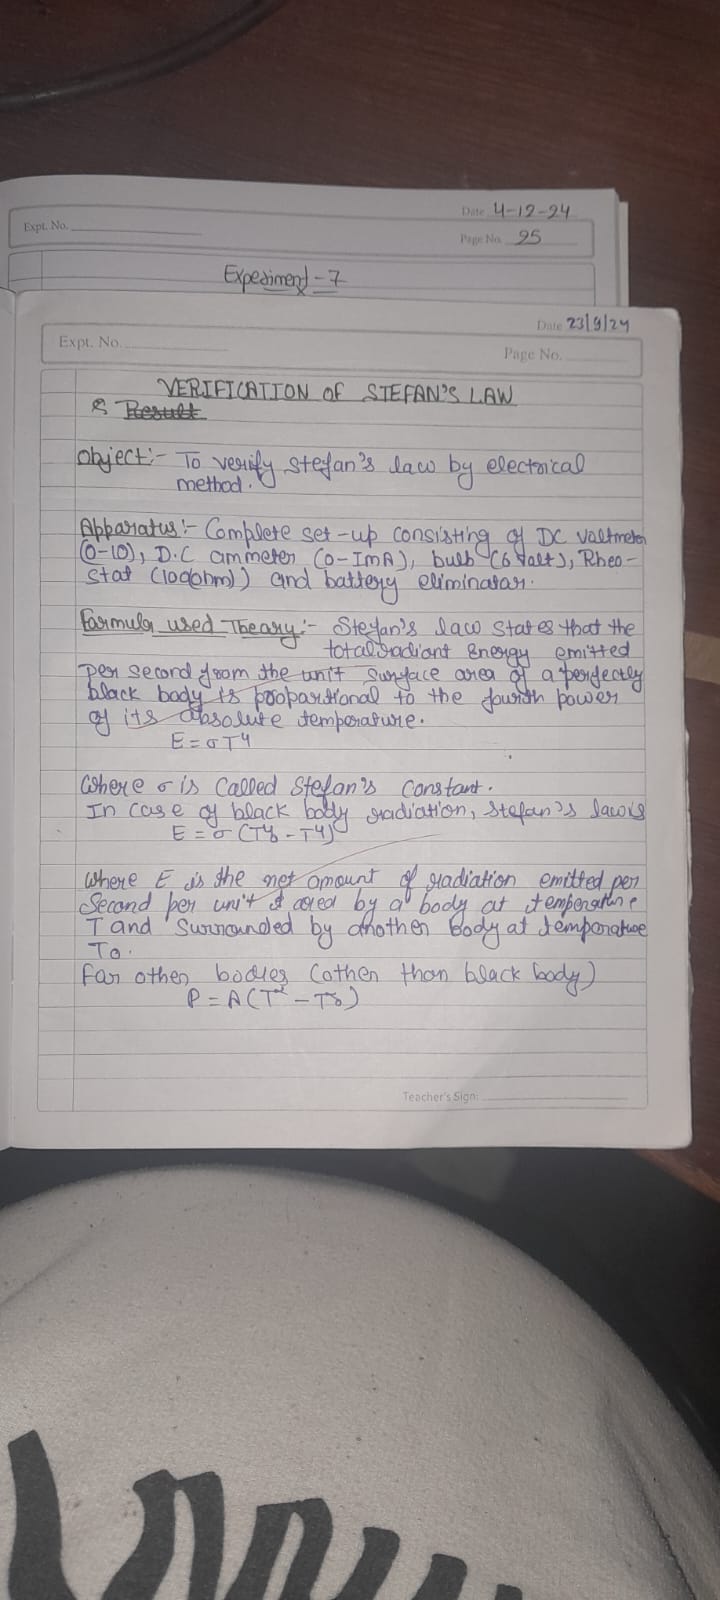 Date 4-12-24
Expt. No.
Page No. 25
Experiment-7
Date 23/9/24
Expt. No.
Page No.
VERIFICATION OF STEFAN'S LAW
Result
Object:- To verify Stefan's law by electrical
method.
Apparatus:- Complete set-up consisting of DC valtmeter
(0-10), D.C ammeter (0-1mA), bulb (6 valt), Rheo-
stat (100ohm)) and battery eliminatar.
Farmula used Theary:- Stefan's law states that the
total radiant Energy emitted
per second from the unit surface area of a perfectly
black body is propartional to the fourth power
of its absolute temperature.
E = σT⁴
Where σ is called Stefan's constant.
In case of black body radiation, Stefan's law is
E = σ (T⁴₀ - T⁴)
Where E is the net amount of radiation emitted per
Second per unit area by a body at temperature
T and Surrounded by another body at temperature
To.
Far other bodies (other than black body)
P = A(T
Teacher's Sign: